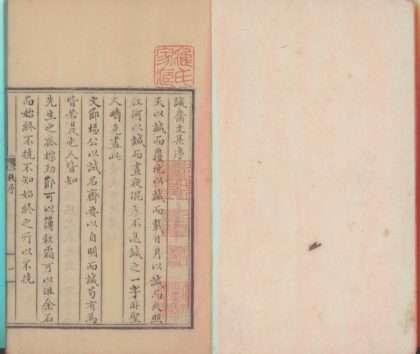 誠齋文集序
天以誠而覆地以誠而載日月以誠而久照
江河以誠而晝夜混混不息誠之一字非聖
人疇克盡此
文節楊公以誠名齋要以自明而誠苟有為
皆若是也人皆知
先生之孤標勁節可以薄秋霜可以沮金石
而始終不撓不知始終之所以不撓
序
一